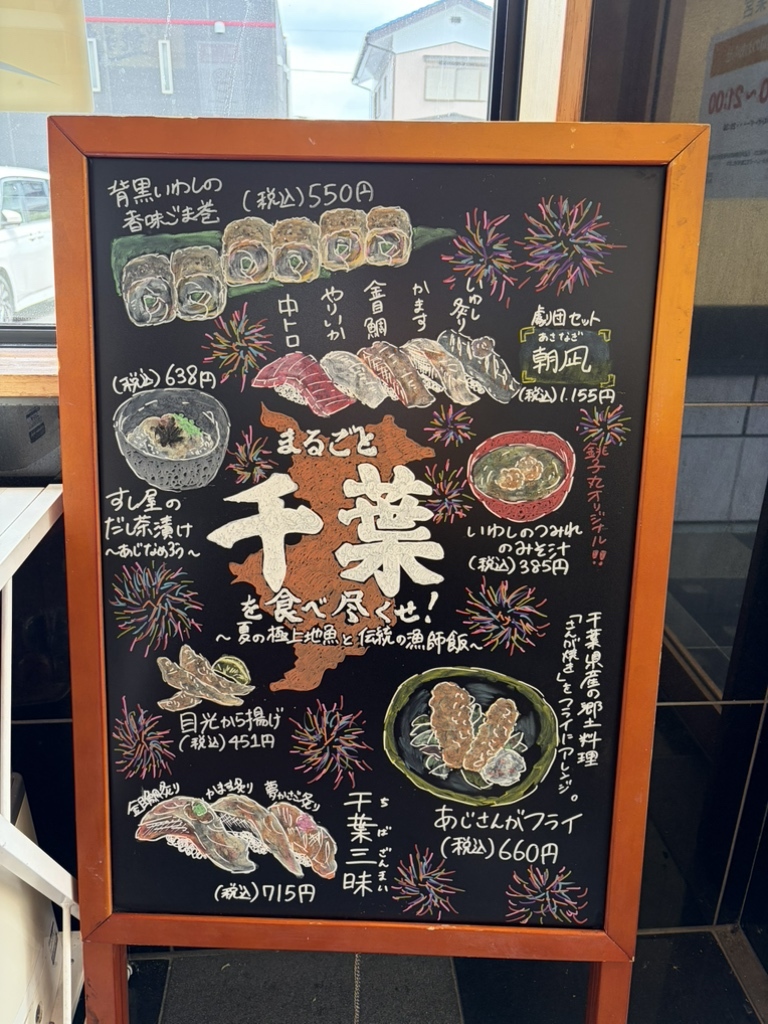 背黒いわしの
香味ごま巻
(税込)550円
いわし炙り
かます
金目鯛
やりいか
中トロ
劇団セット
あさなぎ
朝凪
(税込)1.155円
(税込)638円
すし屋の
だし茶漬け
~あじなめろう~
まるごと
千葉
を食べ尽くせ!
~夏の極上地魚と伝統の漁師飯~
銚子丸オリジナル!!
いわしのつみれ
のみそ汁
(税込)385円
目光から揚げ
(税込)451円
千葉県産の郷土料理
「さんが焼き」をフライにアレンジ。
あじさんがフライ
(税込)660円
金目鯛炙り
かます炙り
夢かさご炙り
千葉三昧
ちばざんまい
(税込)715円